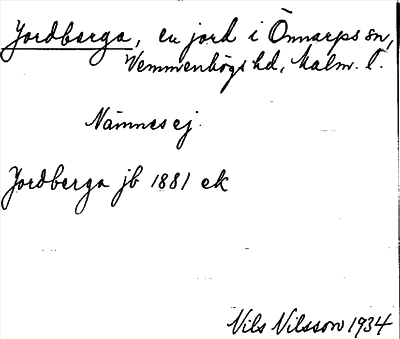 Jordberga, en jord i Önnarps sn,
Vemmenhögs hd, Malm. l.
Nämnes ej.
Jordberga jb 1881 ek
Nils Nilsson 1934